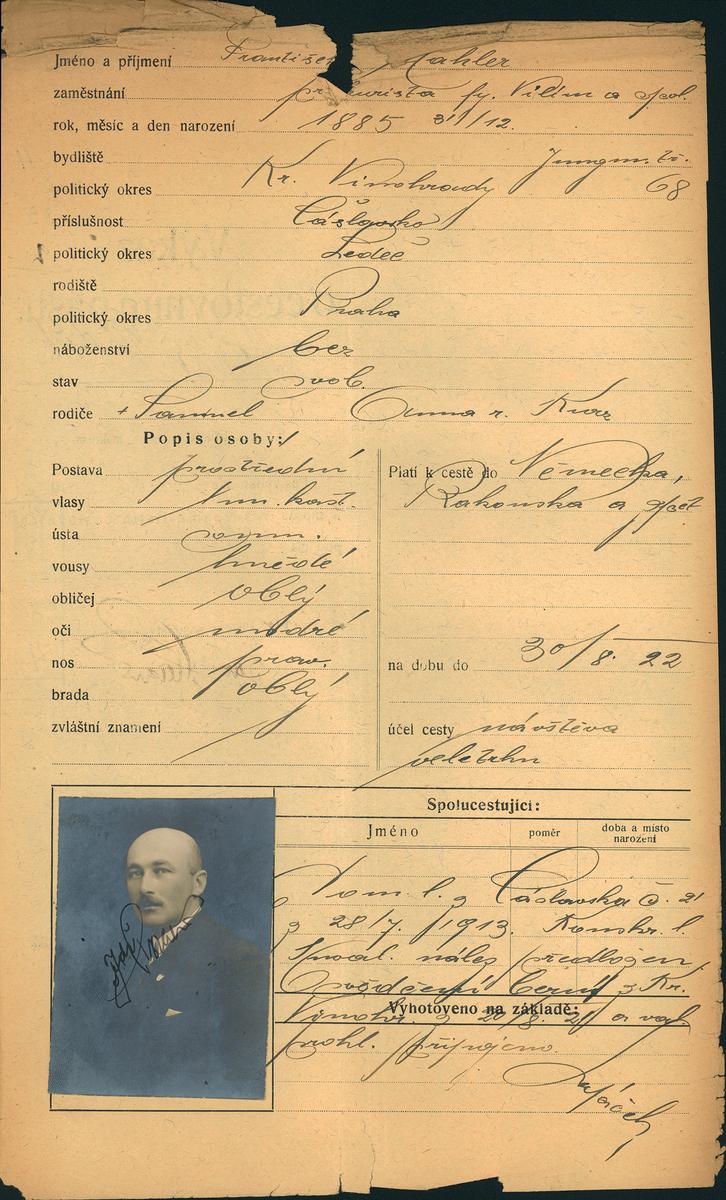 Jméno a příjmení František Mahler
zaměstnání prokurista fy. Vilím a spol.
rok, měsíc a den narození 1885 31/12.
bydliště Jungm. tř.
politický okres Kr. Vinohrady 68
příslušnost Čáslavsko
politický okres Ledeč
rodiště
politický okres Praha
náboženství bez
stav svob.
rodiče + Samuel Anna r. Kurz
Popis osoby:
Postava prostřední
vlasy tm. kašt.
ústa soum.
vousy hnědé
obličej oblý
oči modré
nos prav.
brada oblý
zvláštní znamení
Platí k cestě do Německa,
Rakouska a zpět
na dobu do 30/8. 22
účel cesty návštěva
veletrhu
Spolucestující:
Jméno poměr doba a místo narození
Dom. l. z Čáslavska č. 21
z 28/7. 1913. l.
nález předložen
Osvědčení bern. z Kr.
Vyhotoveno na základě:
Vinohr. z 20/8. 21 a
prohl. připojeno.